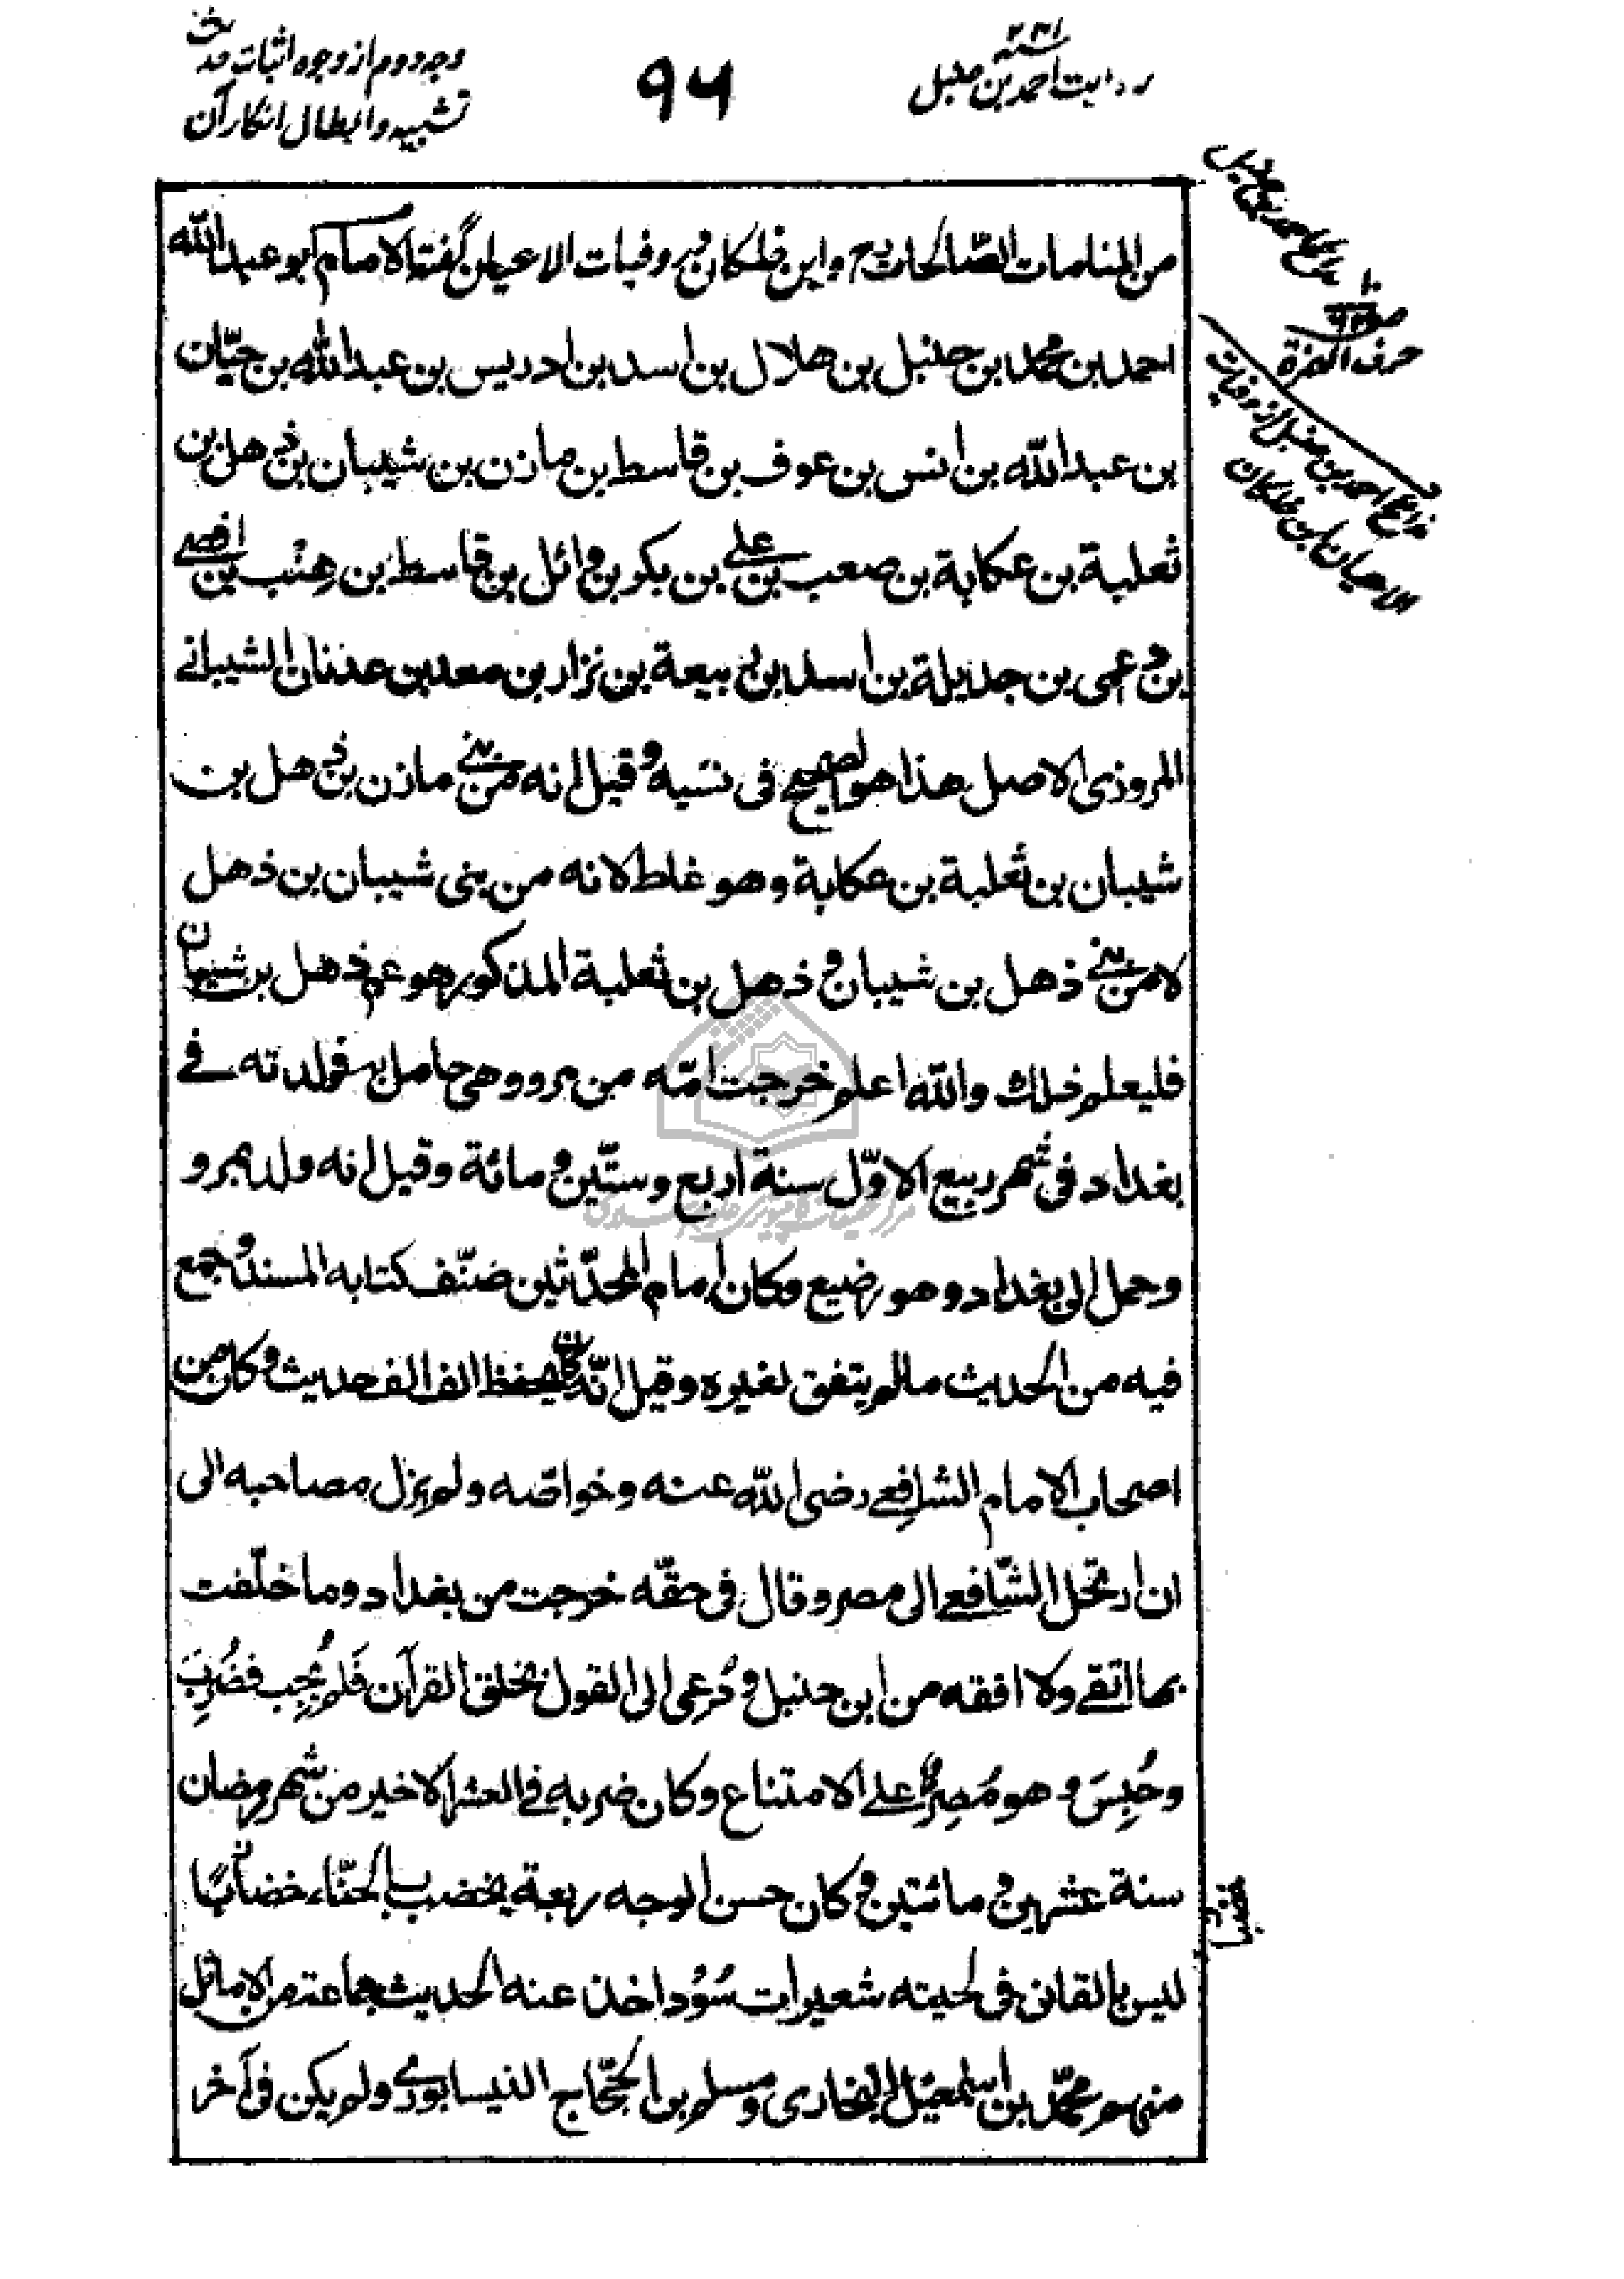 روایت احمد بن حنبل
سنه ۲۴۱
۹۶
وجه دوم از وجوه اثبات حدیث
تشبیه و ابطال انکار آن
من المنامات الصّالحات الخ و ابن خلکان در وفیات الاعیان گفته الامام ابو عبد اللّه
احمد بن محمد بن حنبل بن هلال بن اسد بن ادریس بن عبد اللّه بن حیّان
بن عبد اللّه بن انس بن عوف بن قاسط بن مازن بن شیبان بن ذهل بن
ثعلبة بن عکابة بن صعب بن علی بن بکر بن وائل بن قاسط بن هِنْب بن افصی
بن دعمی بن جدیلة بن اسد بن ربیعة بن نزار بن معد بن عدنان الشیبانے
المروذی الاصل هذا هو الصحیح فی نسبه و قیل انه من بنے مازن بن ذهل بن
شیبان بن ثعلبة بن عکابة و هو غلط لانه من بنی شیبان بن ذهل
لا من بنے ذهل بن شیبان و ذهل بن ثعلبة المذکور هو عم ذهل بن شیبان
فلیعلم ذلك و اللّه اعلم خرجت امّه من مرو و هی حامل به فولدته فے
بغداد فی شهر ربیع الاوّل سنة اربع و ستّین و مائة و قیل انه ولد بمرو
و حمل الی بغداد و هو رضیع و کان امام المحدّثین صنّف کتابه المسند و جمع
فیه من الحدیث مالم یتفق لغیره و قیل انّه کان یحفظ الف الف حدیث و کان من
اصحاب الامام الشافعے رضی اللّه عنه و خواصّه و لم یزل مصاحبه الی
ان ارتحل الشّافعے الی مصر و قال فی حقّه خرجت من بغداد و ما خلّفت
بها اتقے و لا افقه من ابن حنبل و دُعی الی القول بخلق القرآن فَلم یُجِب فضُرِبَ
و حُبِسَ و هو مُصِرٌّ علی الامتناع و کان ضربه فے العشر الاخیر من شهر رمضان
سنة عشرین و مائتین و کان حسن الوجه ربعة یخضب بالحنّاء خضابًا
لیس بالقانی فی لحیته شعیرات سُوْد اخذ عنه الحدیث جماعة من الاماثل
منهم محمّد بن اسمعیل البخاری و مسلم بن الحجّاج النیسابوری و لم یکن فی آخر
حرف الهمزة
مدائح احمد بن حنبل از وفیات
الاعیان ابن خلکان